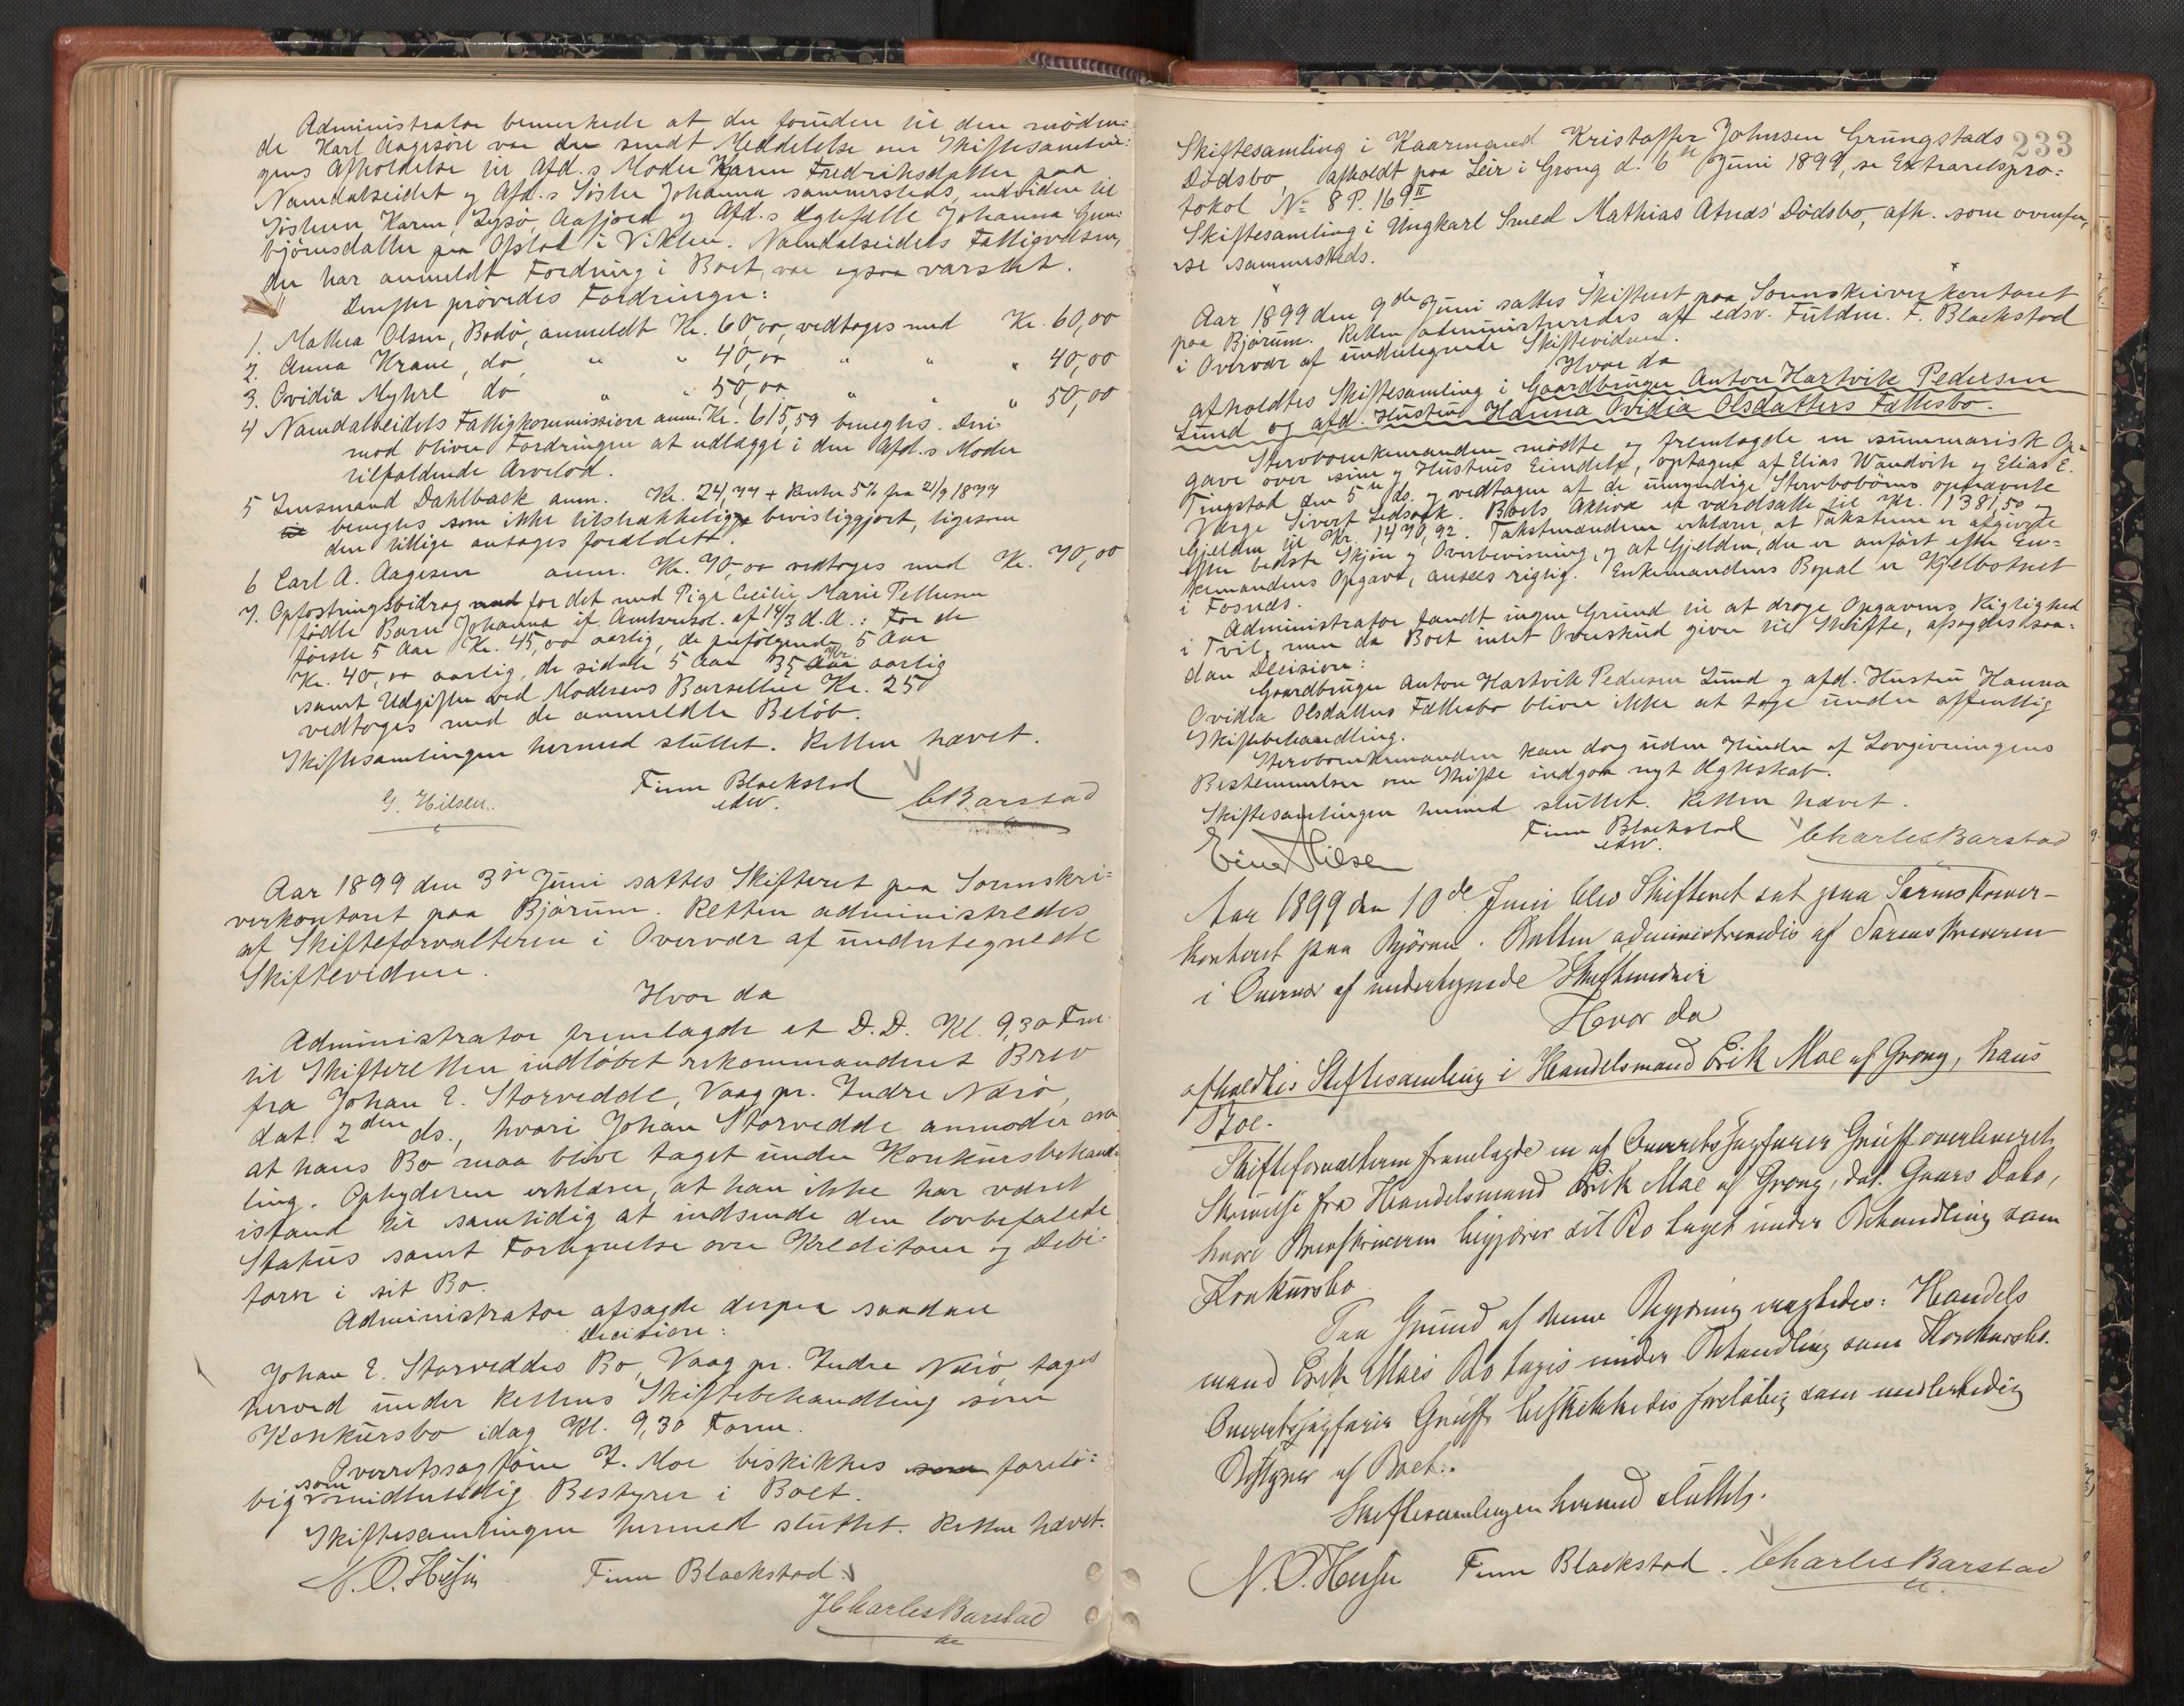 Administrator bemerkede at der foruden til den möden-
de Karl Aagesöre var der sendt Meddelelse om Skiftesamlin-
gens Afholdelse til Afd.s Moder Karen Fredriksdatter paa
Namdalseidet og Afd.s Söster Johanna sammesteds, endvidere til
Karen, Lysö, Aafjord og Afd.s Ægtefælle Johanna
björnsdatter paa Ofstad i Vikten. Namdalseidets Fattigvæsen,
der har anmeldt Fordring i Boet, var ogsaa varslet.
Derefter prövedes Fordringer:
1. Mathea Olsen, Bodö, anmeldt Kr. 60,00, vedtoges med Kr. 60,00
2. Anna Krane, do, " " 40,00 " " " 40,00
3. Ovidia Myhre do " " 50,00 " " " 50,00
4 Namdalseidets Fattigkommission anm. Kr. 615,59 benegtes. Der-
mod bliver Fordringen at udlægge i den Afd.s Moder
tilfaldende Arvelod.
5 Lensmand Dahlback anm. Kr. 24,77 + Renter 5% fra 21/9 1877
benegtes som ikke tilstrækkelig bevisliggjort, ligesom
den tillige antages forældet.
6 Carl A. Aagesen anm. Kr. 70,00 vedtoges med Kr. 70,00
7. Opfostringsbidrag med for det med Pige Cecilie Marie Pettersen
födte Barn Johanna if. Amtsresol. af 14/3 d.A.: For de
förste 5 Aar Kr. 45,00 aarlig, de paafölgende 5 Aar
Kr. 40,00 aarlig, de sidste 5 Aar 35 Kr. aarlig
samt Udgifter ved Moderens Barselfærd Kr. 25
vedtoges med de anmeldte Belöb.
Skiftesamlingen hermed sluttet. Retten hævet.
Finn Blackstad
edsv.
G. Hilsen.
C Barstad
Aar 1899 den 3die Juni sattes Skifteret paa Sorenskri-
verkontoret paa Björum. Retten administredes
af Skifteforvalteren i Overvær af undertegnede
Skiftevidner.
Hvor da
Administrator fremlagde et D.D. Kl. 9,30 Fm.
til Skifteretten indlöbet rekommanderet Brev
fra Johan E. Storvedde, Vaag pr. Indre Nærö,
dat. 2den ds., hvori Johan Storvedde anmoder om
at hans Bo maa blive taget under Konkursbehand-
ling. Opbyderen erklærer, at han ikke har været
istand til samtidig at indsende den lovbefalede
Status samt Fortegnelse over Kreditorer og Debi-
torer i sit Bo.
Administrator afsagde derpaa saadan
Decision:
Johan E. Storveddes Bo, Vaag pr. Indre Nærö, tages
herved under Rettens Skiftebehandling som
Konkursbo idag Kl. 9,30 Form.
Overretssagförer J. Moe beskikkes som forelö-
big som midlertidig Bestyrer i Boet.
Skiftesamlingen hermed sluttet. Retten hævet.
Finn Blackstad.
Charles Barstad
233
Skiftesamling i Kaarmand Kristoffer Johnsen Grungstads
Dödsbo, afholdt paa Leir i Grong d. 6te Juni 1899, se Extraretspro-
tokol No 8 P. 169 II
Skiftesamling i Ungkarl Smed Mathias Atnæs' Dödsbo, afh. som ovenfor,
se sammesteds.
Aar 1899 den 9de Juni sattes Skifteret paa Sorenskriverkontoret
paa Björum. Retten administreredes af edsv. Fuldm. F. Blackstad
i Overvær af undertegnede Skiftevidner.
Hvor da
afholdtes Skiftesamling i Gaardbruger Anton Hartvik Pedersen
Lund og afd. Hustru Hanna Ovidia Olsdatters Fællesbo.
Stervboenkemanden mödte og fremlagde en summarisk Op-
gave over sin og Hustrus Eiendele, optagen af Elias Wandvik og Elias E.
Tingstad den 5te ds. og vedtagen af de umyndige Stervbobörns opnævnte
Værge Sivert. Boets Aktiva er værdsatte til Kr. 1381,50 og
Gjelden til Kr. 1470,92. Takstmændene erklærer, at Taksten er afgivet
efter bedste Skjön og Overbevisning, og at Gjelden, der er anfört efter En-
kemandens Opgave, ansees rigtig. Enkemandens Bopæl er Kjelbotnet
i Fosnæs.
Administrator fandt ingen Grund til at drage Opgavens Rigtighed
i Tvil, men da Boet intet Overskud giver til Skifte, afsagdes saa-
dan Decision:
Gaardbruger Anton Hartvik Pedersen Lund og afd. Hustru Hanna
Ovidia Olsdatters Fællesbo bliver ikke at tage under offentlig
Skiftebehandling.
Stervboenkemanden kan dog uden Hinder af Lovgivningens
Bestemmelser om Skifte indgaa nyt Ægteskab.
Skiftesamlingen hermed sluttet. Retten hævet.
Finn Blackstad
edsv.
Charles Barstad
Einar Hilsen
Aar 1899 den 10de Juni blev Skifteret sat paa Sorenskriver-
kontoret paa Björum. Retten administreredes af Sorenskriveren
i Overvær af undertegnede Skiftevidner
Hvor da
afholdtes Skiftesamling i Handelsmand Erik Moe af Grong, hans
Boe.
Skifteforvalteren fremlagde en af Overretssagförer Gruff overleveret
Skrivelse fra Handelsmand Erik Moe af Grong, dat. Gaars Dato,
hvori Brevskriveren begjærer sit Bo taget under Behandling som
Konkursbo
Paa Grund af denne Begjæring vragtedes: Handels
mand Erik Moes Bo tages under Behandling som Konkursbo.
Overretssagförer Gruff beskikkedes foreløbig som midlertidig
Bestyrer af Boet.
Skiftesamlingen hermed sluttet.
Finn Blackstad.
Charles Barstad